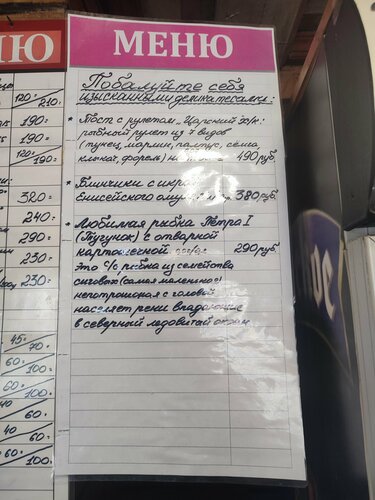 НЮ
МЕНЮ
Побалуйте себя
изысканными деликатесами:
* Тост с рулетом „Царский х/к:
рыбный рулет из 7 видов
(тунец, марлин, палтус, сёмга,
клыкач, форель) на 490 руб.
* Блинчики с икрой
Енисейского 380 руб.
* Любимая рыбка Петра I
(Тугунок) с отварной
картошечкой 290 руб
это С/с рыбка из семейства
сиговых (самая маленькая)
непотрошоная с головой
населяет реки впадающие
в северный ледовитый океан
120=/210=
190=
190=
120=/190=
320=
240=
290=
230=
230=
45=/70=
60=/100=
60/100=
40/60=
40/60=
60=/100=